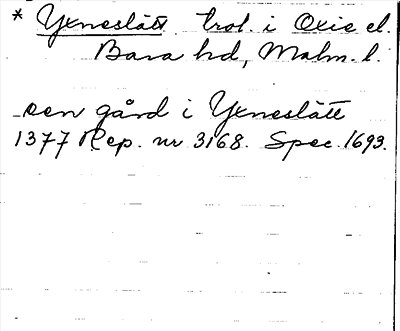 * Yxneslätt trol. i Oxie el.
Bara hd, Malm. l.
een gård i Yxneslätt
1377 Rep. nr 3168. Spec. 1693.